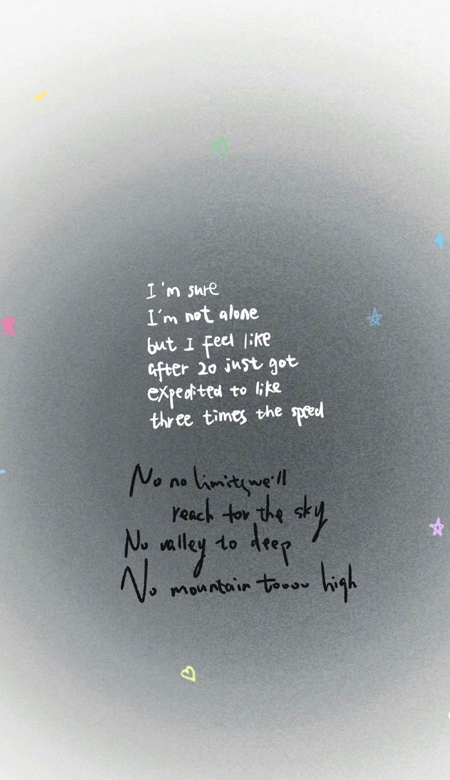 I'm sure
I'm not alone
but I feel like
after 20 just got
expedited to like
three times the speed
No no limits,we'll
reach for the sky
No valley to deep
No mountain toooo high